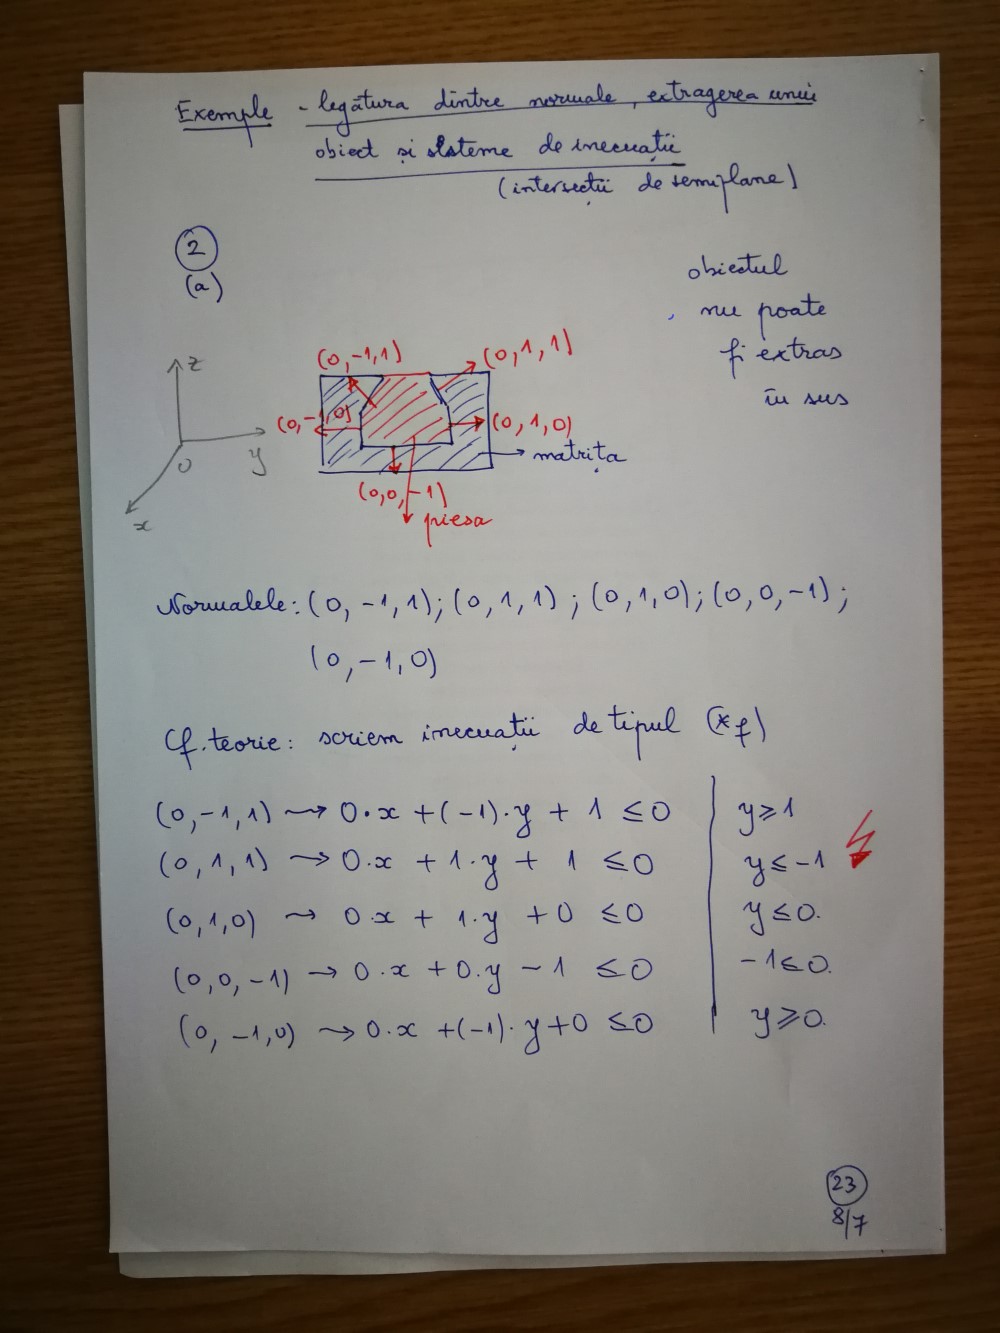 Exemple - legătura dintre normale, extragerea unui
obiect și sisteme de inecuații
(intersecții de semiplane)
2
(a)
obiectul
nu poate
fi extras
în sus
z
y
0
x
(0,-1,1)
(0,1,1)
(0,-1,0)
(0,1,0)
matrița
(0,0,-1)
piesa
Normalele: (0,-1,1); (0,1,1); (0,1,0); (0,0,-1);
(0,-1,0)
Cf. teorie: scriem inecuații de tipul (*f)
(0,-1,1) → 0·x + (-1)·y + 1 ≤ 0 | y ≥ 1
(0,1,1) → 0·x + 1·y + 1 ≤ 0 | y ≤ -1
(0,1,0) → 0·x + 1·y + 0 ≤ 0 | y ≤ 0.
(0,0,-1) → 0·x + 0·y - 1 ≤ 0 | -1 ≤ 0.
(0,-1,0) → 0·x + (-1)·y + 0 ≤ 0 | y ≥ 0.
23
8/7